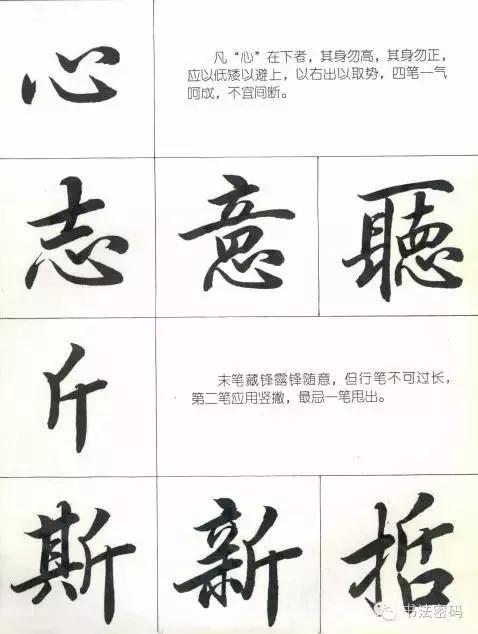 心
凡“心”在下者，其身勿高，其身勿正，
应以低矮以避上，以右出以取势，四笔一气
呵成，不宜间断。
志 意 聽
斤
末笔藏锋露锋随意，但行笔不可过长，
第二笔应用竖撇，最忌一笔甩出。
斯 新 哲
书法密码